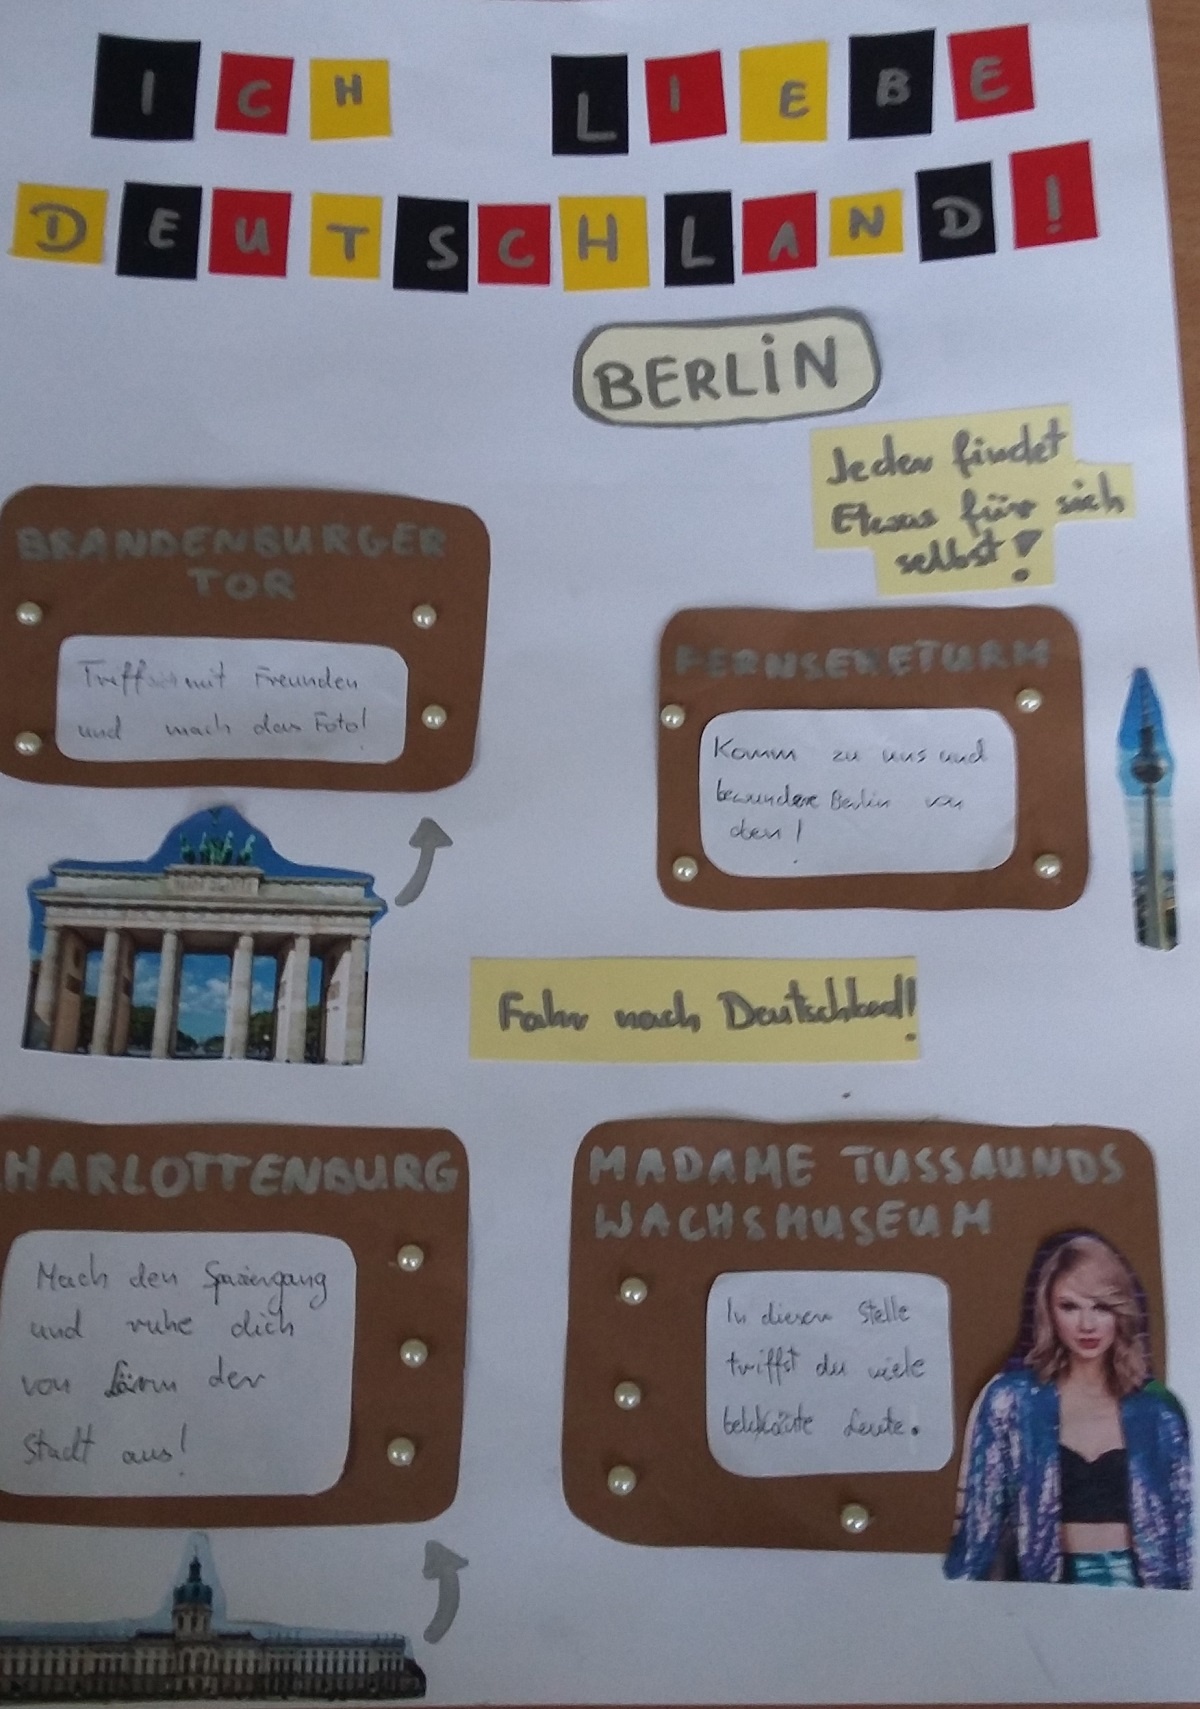 ICH LIEBE
DEUTSCHLAND!
BERLIN
Jeder findet
Etwas für sich
selbst!
BRANDENBURGER
TOR
Treff mit Freunden
und mach das Foto!
FERNSEHETURM
Komm zu uns und
bewundere Berlin von
oben!
Fahr nach Deutschland!
HARLOTTENBURG
Mach den Spaziergang
und ruhe dich
von Lärm der
Stadt aus!
MADAME TUSSAUNDS
WACHSMUSEUM
In diesem Stelle
triffst du viele
Leute.